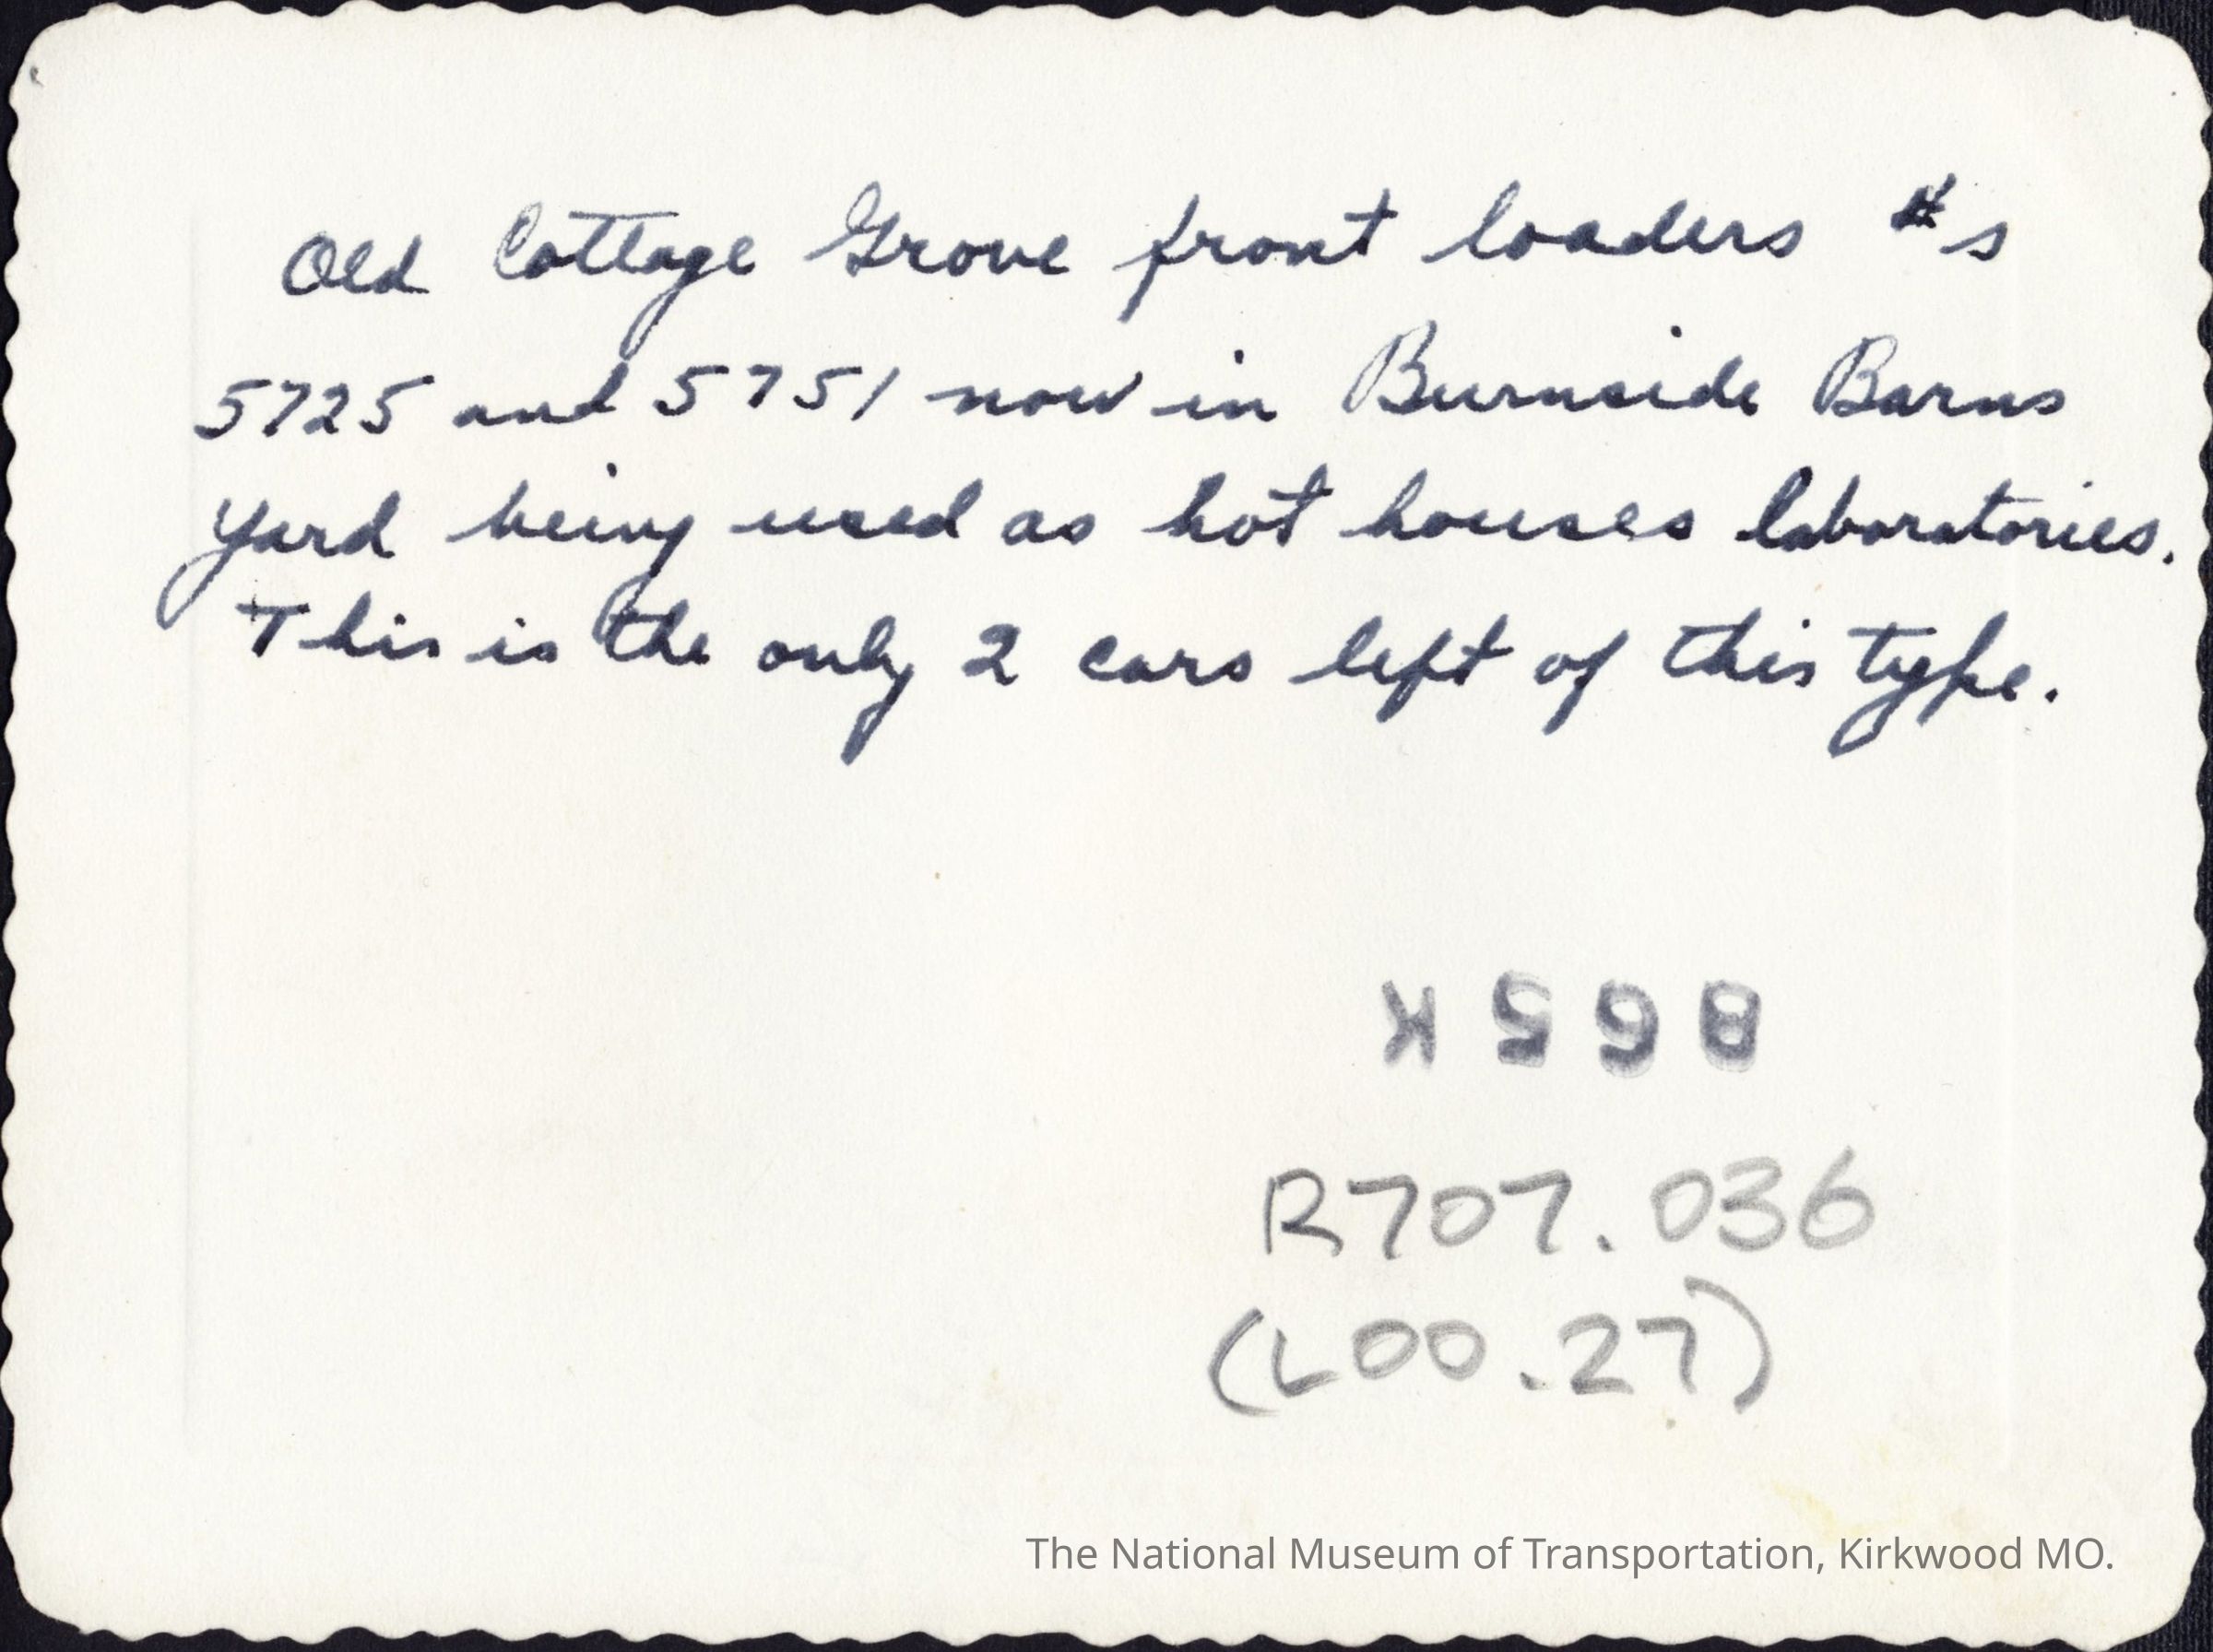 Old Cottage Grove front loaders #s
5725 and 5751 now in Burnside Barns
Yard being used as hot houses laboratories.
This is the only 2 cars left of this type.
865K
R707.036
(L00.27)
The National Museum of Transportation, Kirkwood MO.